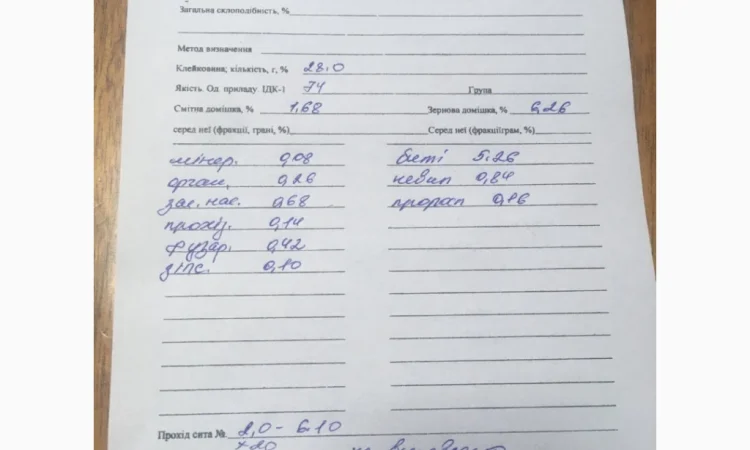 Загальна склоподібність, %
Метод визначення
Клейковина; кількість, г, % 28.0
Якість Од. приладу ІДК-1 74 Група
Смітна домішка, % 1,68 Зернова домішка, % 6,26
серед неї (фракції, грані, %) Серед неї (фракції/грам, %)
мінер. 0,08 биті 5.26
орган. 0,26 невип 0,84
зас. нас. 0,68 прорап 0,16
прохід. 0,14
фузар. 0,42
зіпс. 0,10
Прохід сита № 2,0 - 6.10